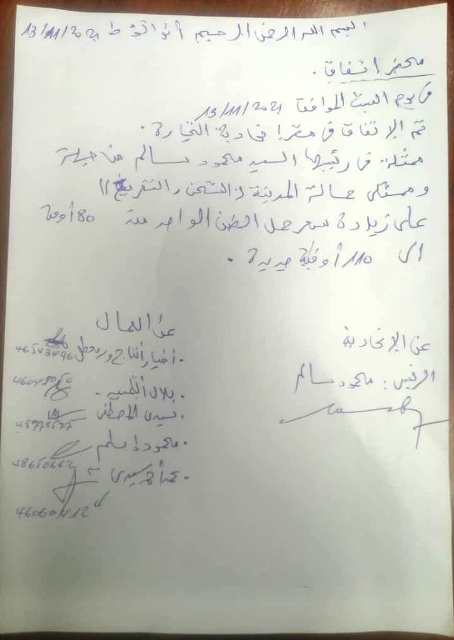 بسم الله الرحمن الرحيم أنواكشوط 13/11/2021
محضر اتفاق.
في يوم السبت الموافق 13/11/2021
تم الاتفاق في مقر اتحادية التجارة.
ممثلة في رئيسها السيد محمود سالم من جهة
وممثلي حمالة المدينة (الشحن والتفريغ)
على زيادة سعر حمل الطن الواحد من 80 أوقية
إلى 110 أوقية جديدة.
عن الاتحادية
الرئيس: محمود سالم
عن العمال
بلال
سيدي المصطفى
محمود اسلم